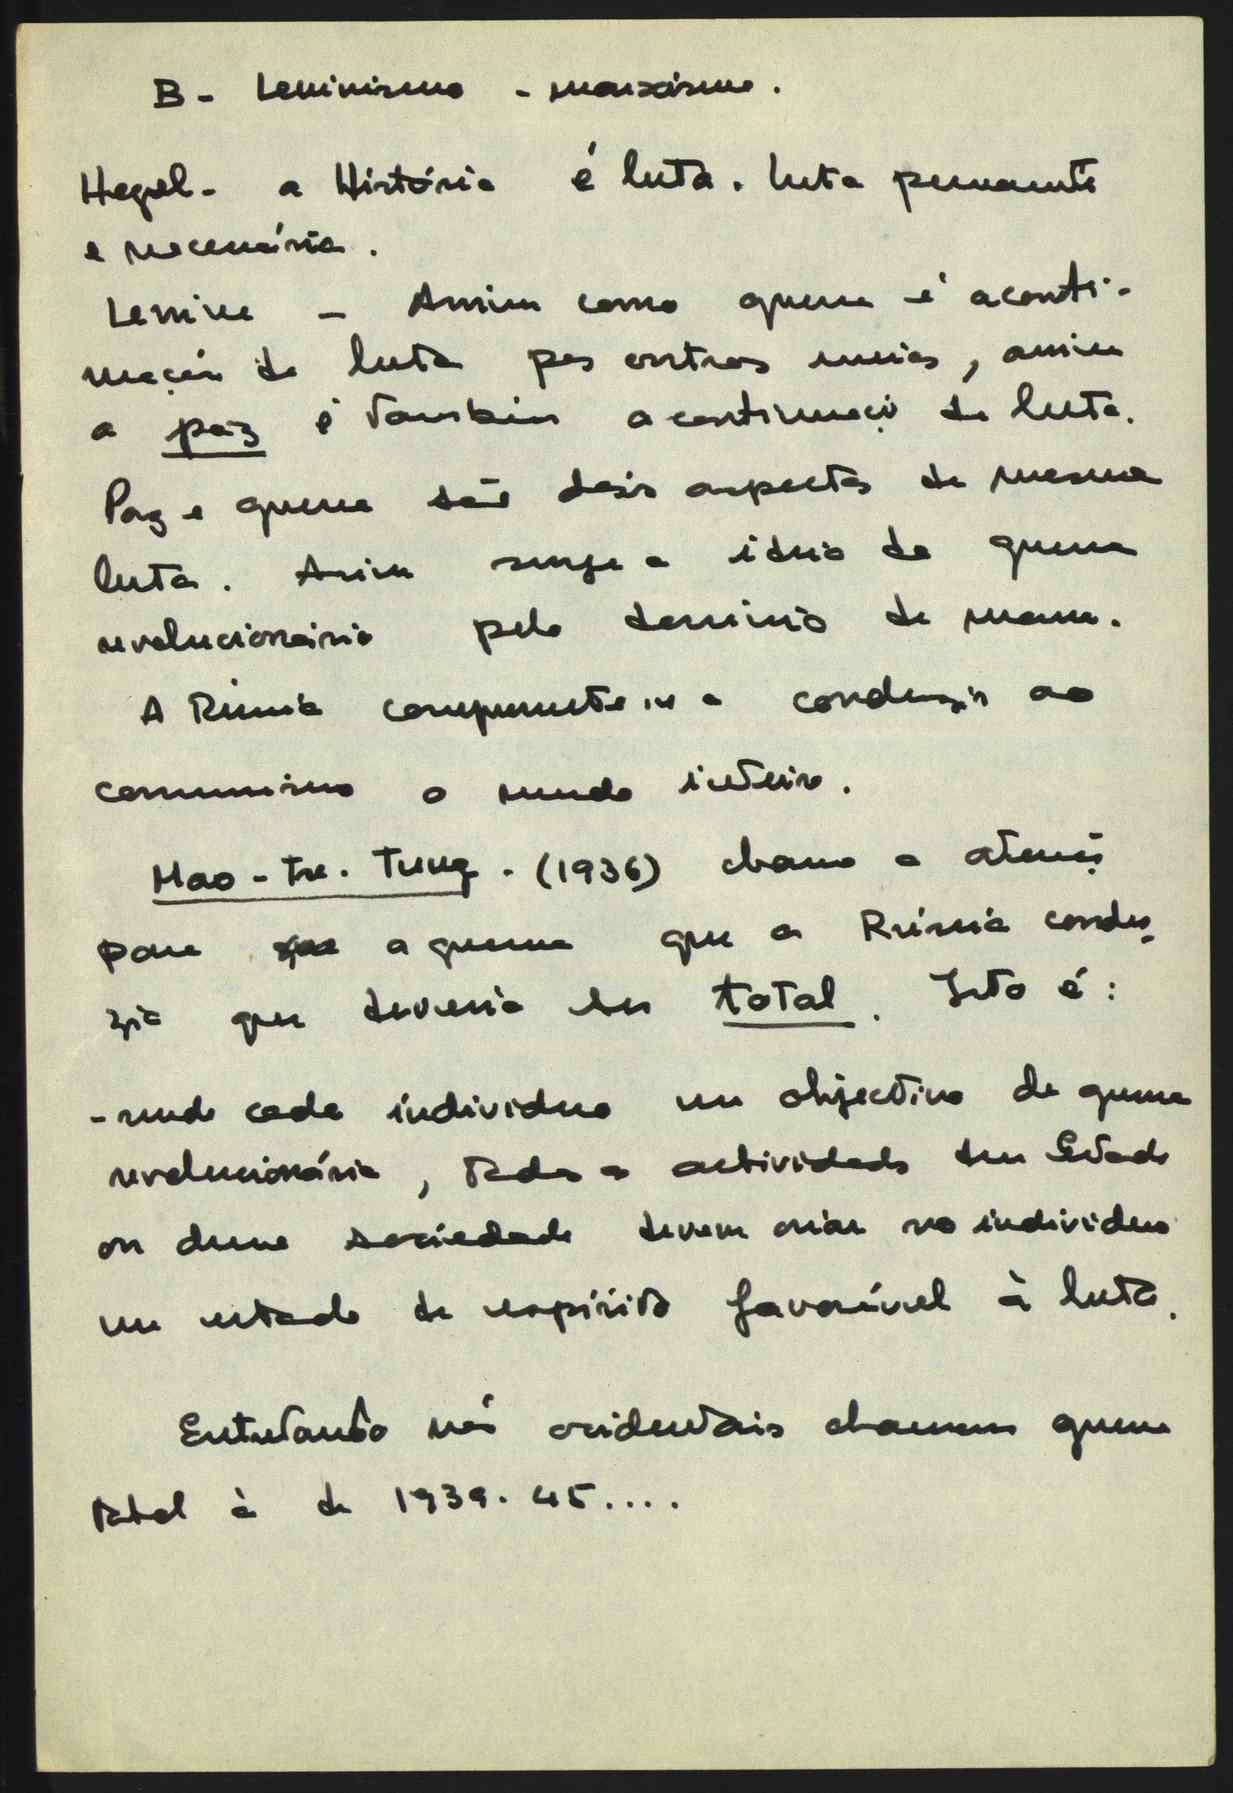 B - Leninismo - marxismo.
Hegel - a História é luta. Luta permanente
e necessária.
Lenine - Assim como guerra é a conti-
nuação da luta por outros meios, assim
a paz é também a continuação da luta.
Paz e guerra são dois aspectos da mesma
luta. Assim surge a ideia da guerra
revolucionária pelo domínio da massa.
A Rússia compromete-se a conduzir ao
comunismo o mundo inteiro.
Mao-Tse-Tung - (1936) chama a atenção
para a guerra que a Rússia condu-
zia que deveria ser total. Isto é:
- sendo cada indivíduo um objectivo da guerra
revolucionária, toda a actividade dum Estado
ou duma sociedade devem criar no indivíduo
um estado de espírito favorável à luta.
Entretanto nós ocidentais chamamos guerra
total à de 1939-45....